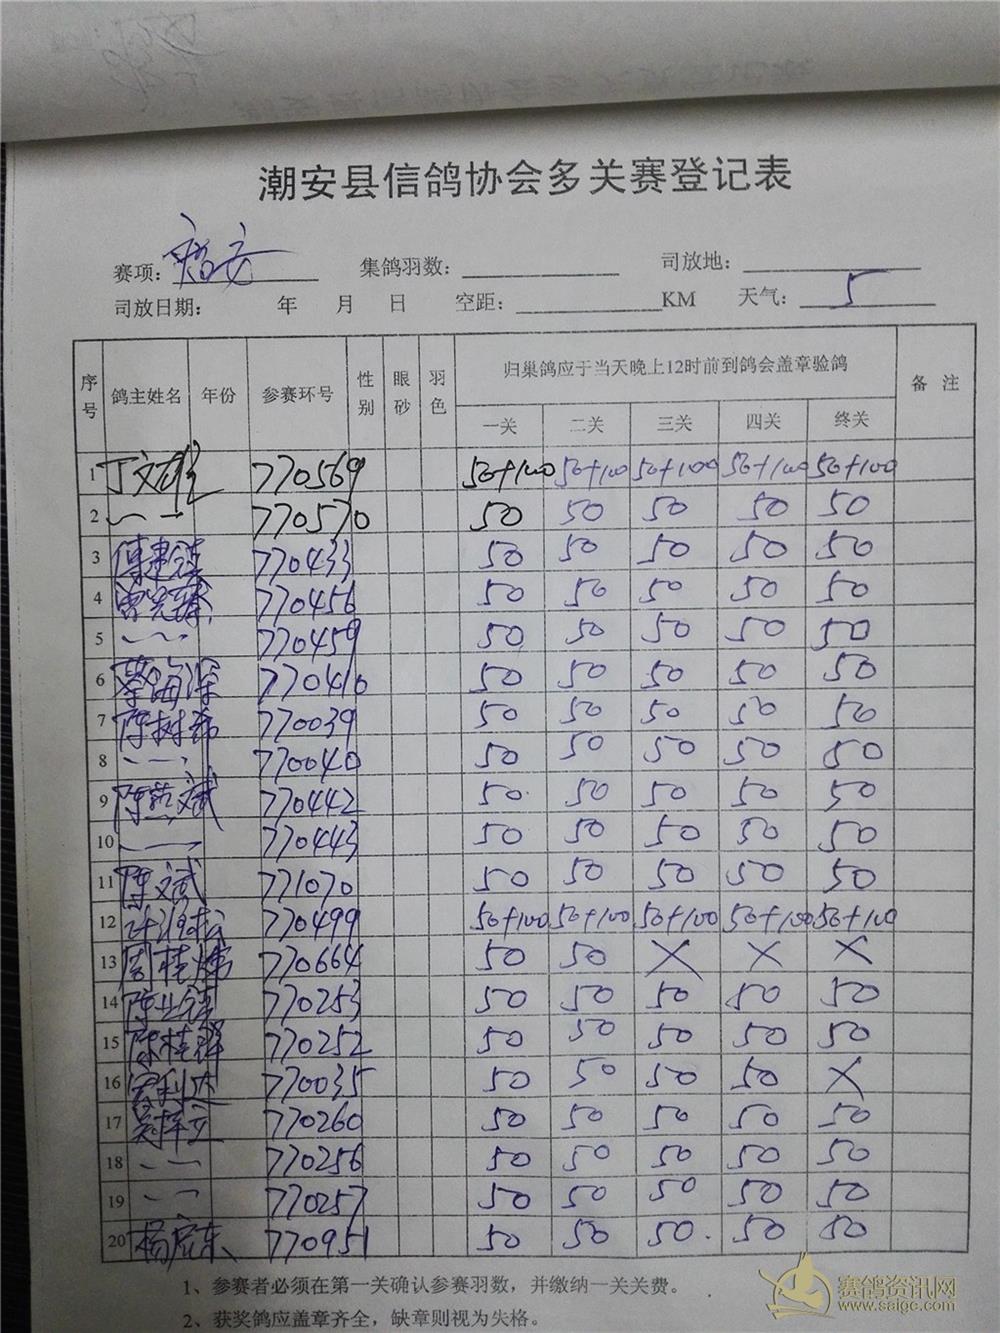 潮安县信鸽协会多关赛登记表
赛项：诏安 集鸽羽数： 司放地：
司放日期： 年 月 日 空距： KM 天气： 5
序号 鸽主姓名 年份 参赛环号 性别 眼砂 羽色 归巢鸽应于当天晚上12时前到鸽会盖章验鸽 备注
一关 二关 三关 四关 终关
1 丁文雄 770569 50+100 50+100 50+100 50+100 50+100
2 770570 50 50 50 50 50
3 770433 50 50 50 50 50
4 770456 50 50 50 50 50
5 770459 50 50 50 50 50
6 蔡海深 770410 50 50 50 50 50
7 陈树 770039 50 50 50 50 50
8 770040 50 50 50 50 50
9 陈 斌 770442 50 50 50 50 50
10 770443 50 50 50 50 50
11 陈文斌 771070 50 50 50 50 50
12 松 770499 50+100 50+100 50+100 50+100 50+100
13 周桂 770664 50 50 × × ×
14 陈 770253 50 50 50 50 50
15 陈桂 770252 50 50 50 50 50
16 利达 770035 50 50 50 50 ×
17 吴梓 770260 50 50 50 50 50
18 770256 50 50 50 50 50
19 770257 50 50 50 50 50
20 杨 东 770951 50 50 50. 50 50
1、参赛者必须在第一关确认参赛羽数，并缴纳一关关费。
2、获奖鸽应盖章齐全，缺章则视为失格。
赛鸽资讯网
www.saigc.com